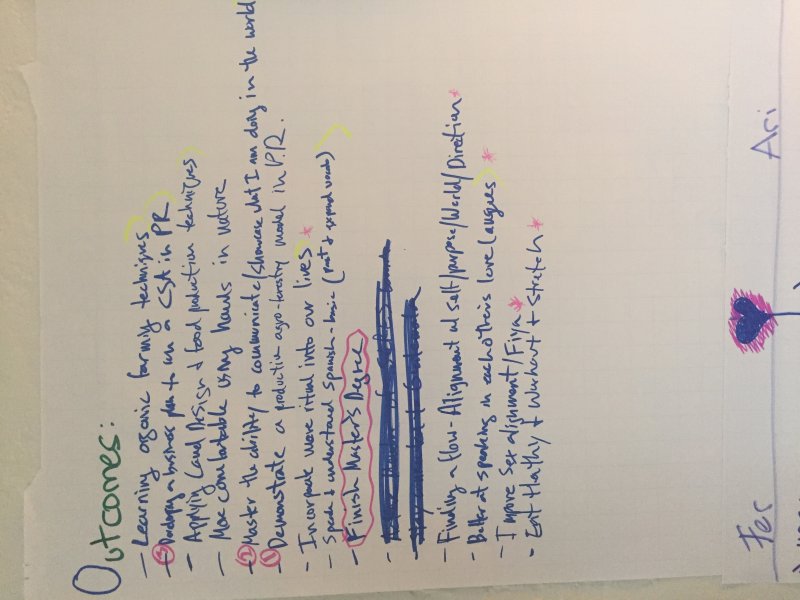 Outcomes:
- Learning organic farming techniques
- ③ Developing a business plan to run a CSA in PR
- Applying Land Design & food production techniques
- More comfortable using hands in nature
- ② Master the ability to communicate/showcase what I am doing in the world
- ① Demonstrate a production agro-forestry model in P.R.
- Incorporate more ritual into our lives *
- Speak & understand Spanish - basic (past & expand vocab)
- Finish Master's Degree
- Finding a flow - Alignment w/ self/purpose/World/Direction *
- Better at speaking in each others love langues *
- Improve Sex alignment/Fiya *
- Eat Healthy & Workout & Stretch *
Fer Ari